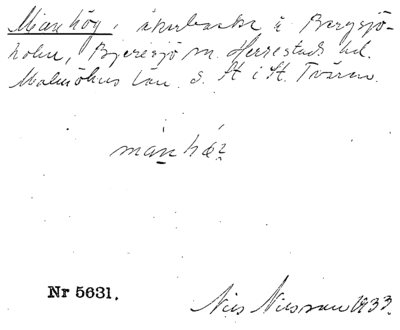 Mianhög, åkerbacke å Bergsjö-
holm, Bjeresjö sn. Herrestads hd.
Malmöhus län. S. St i St. Tvären.
mianhög
Nr 5631.
Nils Nilsson 1933.